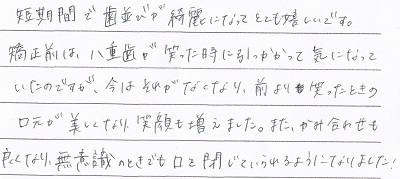 短期間で歯並びが綺麗になってとても嬉しいです。
矯正前は、八重歯が笑った時に引っかかって気になって
いたのですが、今はそれがなくなり、前より笑ったときの
口元が美しくなり、笑顔も増えました。また、かみ合わせも
良くなり、無意識のときでも口を閉じていられるようになりました!